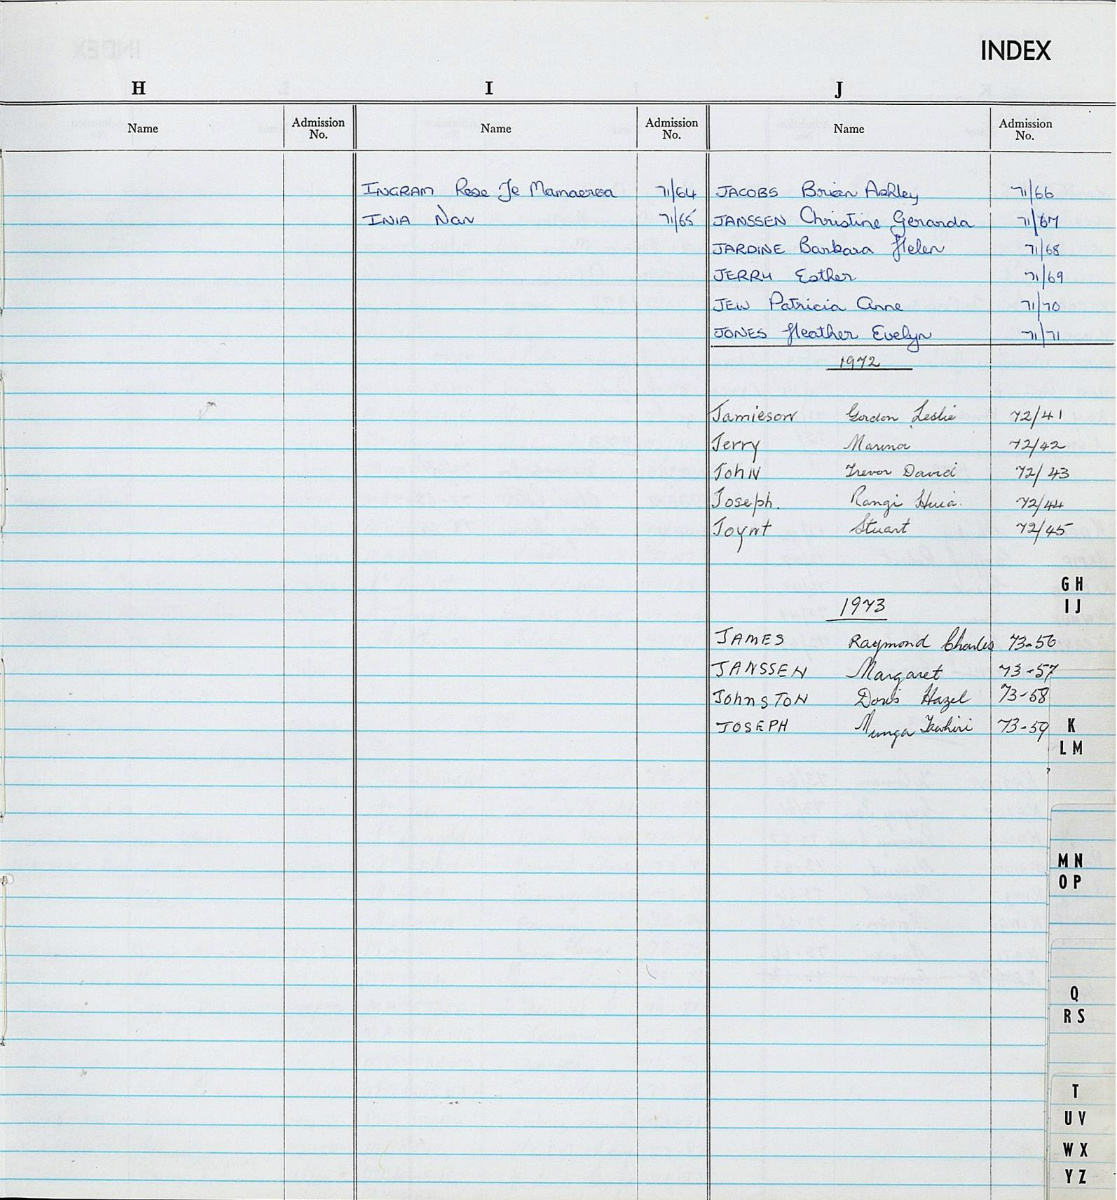 INDEX
H I J
Name Admission No. Name Admission No. Name Admission No.
INGRAM Rose Te Mamaeroa 71/64
INIA Nan 71/65
JACOBS Brian Ashley 71/66
JANSSEN Christine Geranda 71/67
JARDINE Barbara Helen 71/68
JERRY Esther 71/69
JEW Patricia Anne 71/70
JONES Heather Evelyn 71/71
1972
Jamieson Gordon Leslie 72/41
Jerry Marina 72/42
John Trevor David 72/43
Joseph. Rangi Huia. 72/44
Joynt Stuart 72/45
1973
JAMES Raymond Charles 73-56
JANSSEN Margaret 73-57
JohnsTON Doris Hazel 73-58
JOSEPH Munga 73-59
G H
I J
K
L M
M N
O P
Q
R S
T
U V
W X
Y Z